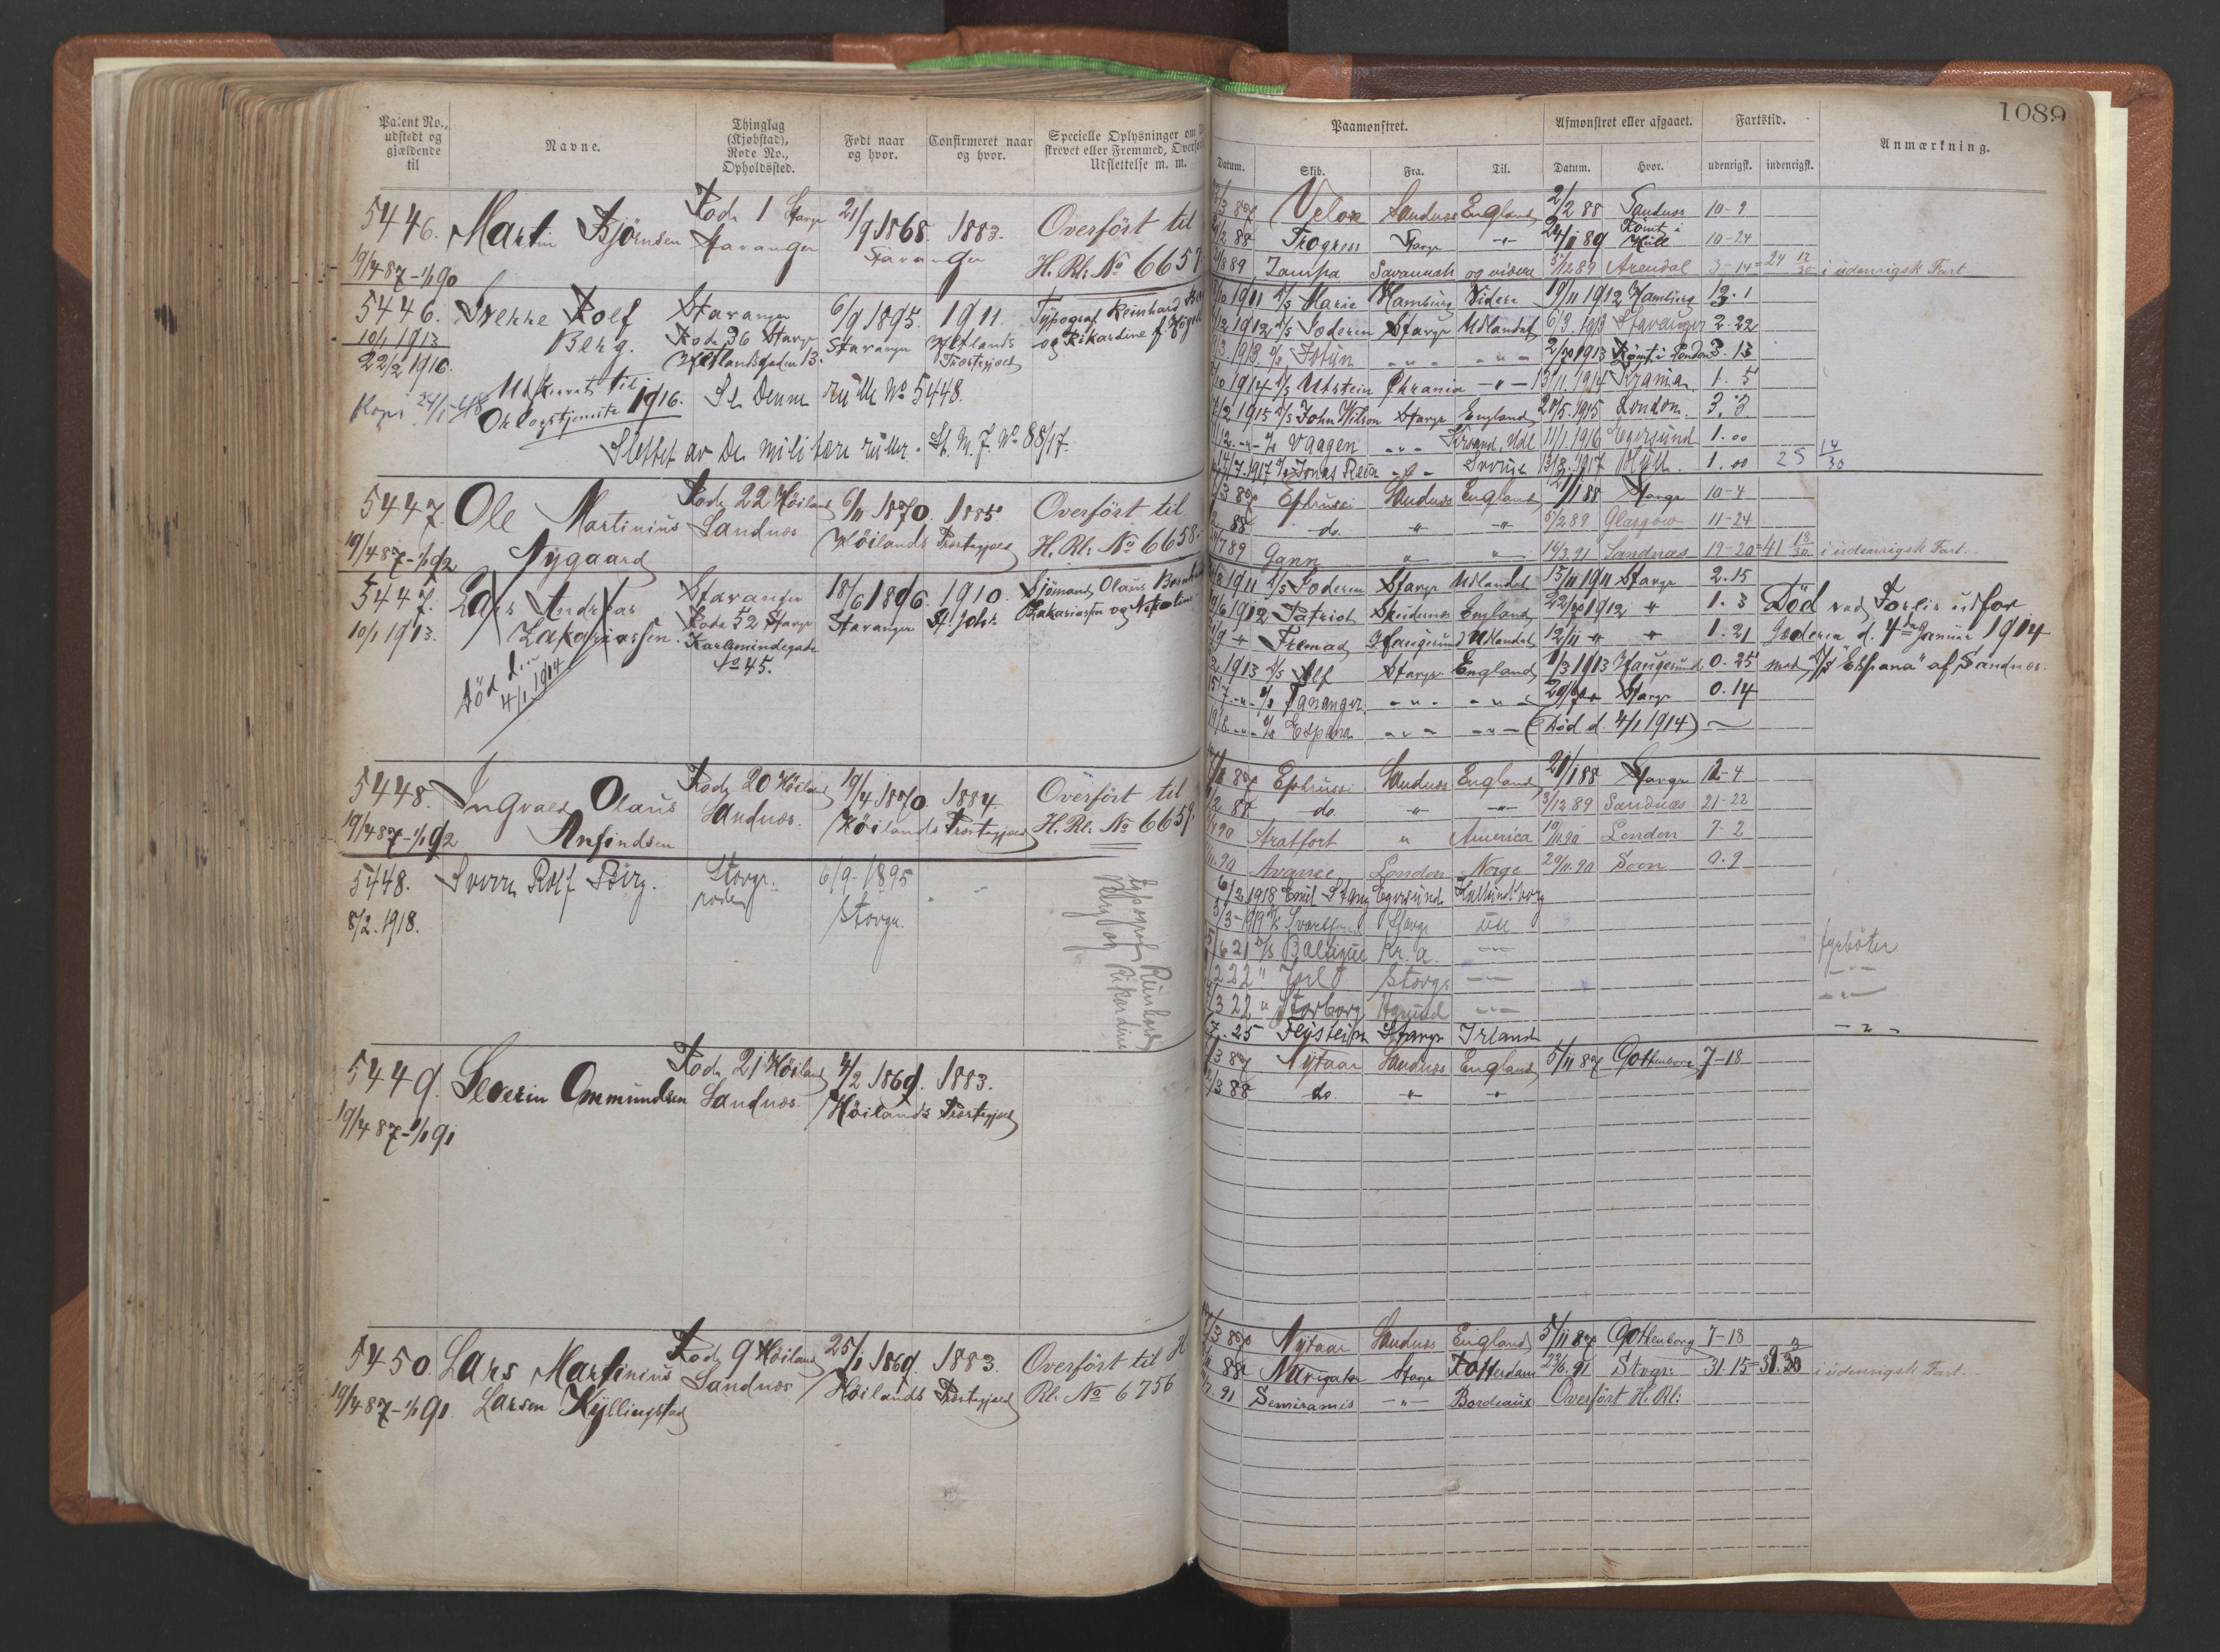 1089
Patent No., udstedt og gjældende til
Navne.
Thinglag (Kjøbstad), Rode No., Opholdssted.
Født naar og hvor.
Confirmeret naar og hvor.
Specielle Oplysninger om
skrevet eller Fremmed, Overført
Udslettelse m. m.
Paamønstret.
Afmønstret eller afgaaet.
Fartstid.
Anmærkning.
Datum. Skib. Fra. Til. Datum. Hvor. udenrigsk. indenrigsk.
5446. Martin Bjørnsen Rode 1 Stavgr Stavanger 21/9 1868. Stavanger 1883. Overført til H. Rl. No 6657
19/4 87-1/1 90
Velox Sandnes England 2/2 88 Sandnes 10-9
2 88 Progress Stavgr -"- 24/1 89 Rømt i Hull 10-24
8 89 Tampa Savannah og videre 12 89 Arendal 3-14 = 24 12/30 i udenrigsk Fart
5446. Sverre Rolf Berg. Stavanger Rode 36 Stavgr Hetlandsgaden 13. 6/9 1895. Stavanger 1911 Hetlands Præstegjæld Typograf Reinhard
og Rikardine f.
10/1 1913
22/2 1916.
Udskrevet til Orlogstjeneste 1916. Se Denne rulle No 5448.
Slettet av De militære ruller. St. M. J. No 88/17.
10 1911 D/S Marie Hamburg Videre 19/11 1912 Hamburg 12. 1
12 1912 D/S Joderen Stavgr Udlandet 6/3. 1913 Stavanger 2. 22
3. 1913 Jotun -"- -"- 1913 Rømt i London 3. 13
10 1914 D/S Utstein Chrania -"- 13/11 1914 Krania 1. 5
2 1915 D/S John Wilson Stavgr England 20/5. 1915 London. 3. 3
12. -"- Vaagen -"- 11/1 1916 Egersund 1. 00
7. 1917 Jonas Rein -"- Sverige 13/8. 1917 Hull. 1. 00 25 14/30
5447. Ole Martinius Nygaard Rode 22 Høiland Sandnes 6/11 1870. 1885 Høilands Præstegjæld Overført til H. Rl. No 6658.
19/4 87-1/1 92
3 87 Ephrussi Sandnes England 2/1 88 Stavgr 10-4
88 do. " -"- 5/2 89 Glasgow 11-24
7 89 Gann " " 16/3 91 Sandnes 19-20 = 41 18/30 i udenrigsk Fart.
5447. Lars Andreas Zakariassen. Stavanger Rode 52 Stavgr Karlsmindegade No 45. 18/6 1896. Stavanger 1910. St. Joh. Sjømand Olaus
Zakariassen og
10/1 1913.
Død d. 4/1 1914
8 1911 D/S Joderen Stavgr Udlandet 15/11 1911 Stavgr 2. 15
6 1912 Patriot Skudesnes England 1912 " 1. 3 Død ved Forlis udfor
9 " Fremad Haugesund Udlandet 12/11 " " 1. 21 Jæderen d. 4de Januar 1914
1913 D/S Alf Stavgr England 1/3 1913 Haugesund 0. 25 med D/S "Espana" af Sandnes.
7 -"- Tananger -"- -"- Stavgr 0. 14
8 -"- Espana -"- -"- (Død d. 4/1 1914)
5448. Ingvald Olaus Anfindsen Rode 20 Høiland Sandnes. 19/4 1870. 1884. Høilands Præstegjæld Overført til H. Rl. No 6659.
19/4 87-1/1 92
87 Ephrussi Sandnes England 21/1 88 Stavgr 12-4
88 do. " -"- 3/12 89 Sandnæs 21-22
90 Stratfort " America 10/11 90 London 7-2
11. 90 Avance London Norge 20/11. 90 Soon 0. 9
5448. Sverre Rolf Berg. Stavgr. roden 6/9-1895 Stavgr.
8/2. 1918.
Typograf Reinhardt Berg og Rikardine
6/2 1918 Emil Stang Egersund Kallundborg
3/3-1919 Stavgr Utl
6 21 D/S Baltique Kr. a. -"- fyrbøter
2 22 " Jarl Stavgr -"- -"-
3 22 " Storborg -"- -"-
7. 25 Feistein Stavgr Irland -"-
5449. Severin Ommundsen Rode 21 Høiland Sandnes. 4/2 1869. 1883. Høilands Præstegjæld
19/4 87-1/1 91
3 87 Nytaar Sandnes England 5/11 87 Gottenborg 7-18
3 88 do. " "
5450. Lars Martinius Larsen Kyllingstad Rode 9 Høiland Sandnes 25/1 1869. 1883. Høilands Præstegjæld Overført til H Rl. No 6756
19/4 87-1/1 91.
3 87 Nytaar Sandnes England 5/11 87 Gottenborg 7-18
88 Navigator Stavgr Rotterdam 23/6. 91 Stvgr: 31-15 = i udenrigsk Fart.
7. 91 Semiramis -"- Bordeaux Overført H. Rl: